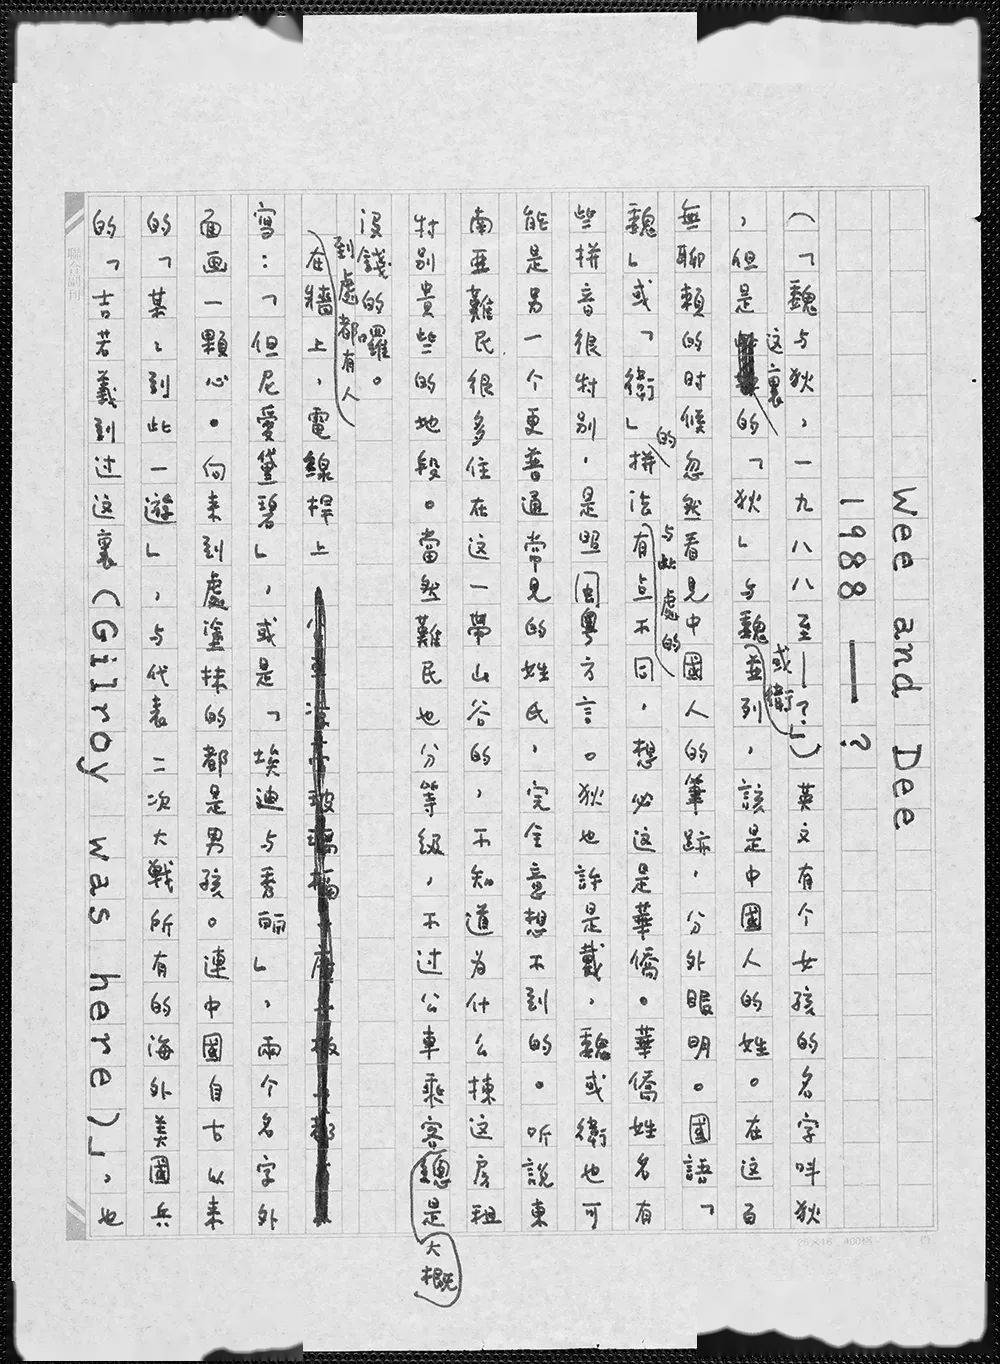 Wee and Dee
1988 — ?
（「魏与狄，一九八八至——？」）英文有个女孩的名字叫狄
或衛
，但是这裏的「狄」与魏並列，該是中國人的姓。在这百
这裏
無聊賴的时候忽然看見中國人的筆跡，分外眼明。國語「
的
与此處的
魏」或「衛」拼法有点不同，想必这是華僑。華僑姓名有
些拼音很特別，是照闽粵方言。狄也許是戴，魏或衛也可
能是另一个更普通常見的姓氏，完全意想不到的。听說東
南亞難民很多住在这一帶山谷的，不知道为什么揀这房租
特別貴些的地段。當然難民也分等級，不过公車乘客總是
大概
沒錢的囉。
到處都有人
在牆上，電線桿上
寫：「但尼愛黛碧」，或是「埃迪与秀丽」，兩个名字外
面画一顆心。向来到處塗抹的都是男孩。連中國自古以来
的「某某到此一遊」，与代表二次大戰所有的海外美國兵
的「吉若義到过这裏（Gilroy was here）」，也
聯合副刊
25×16 400格